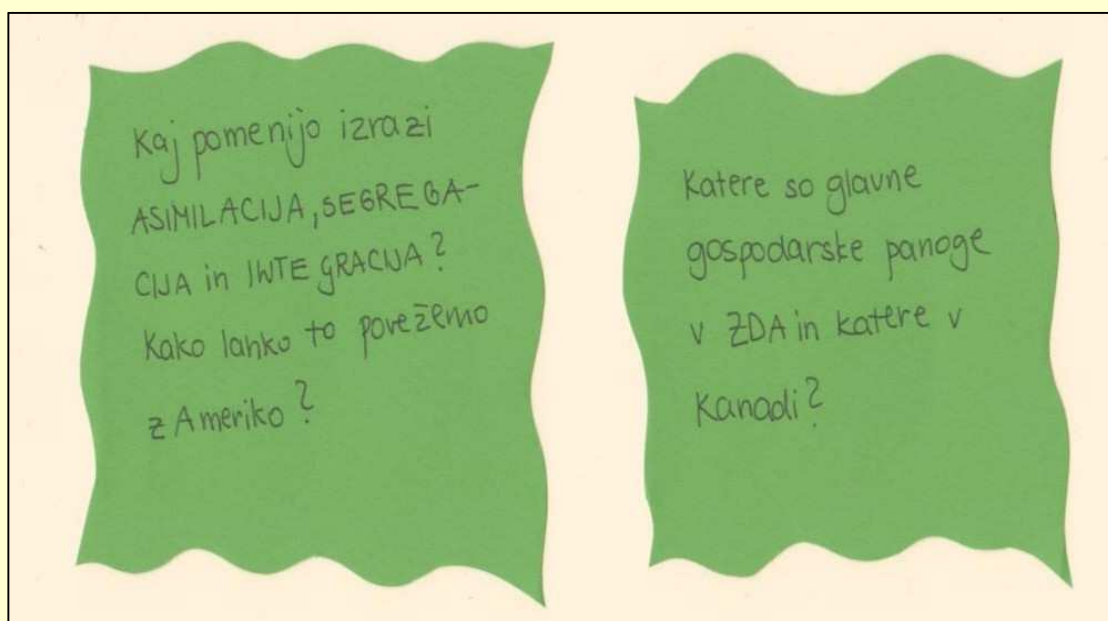 Kaj pomenijo izrazi
ASIMILACIJA, SEGREGA-
CIJA in INTEGRACIJA?
Kako lahko to povežemo
z Ameriko?
Katere so glavne
gospodarske panoge
v ZDA in katere v
Kanadi?